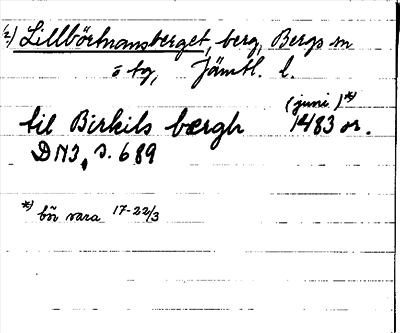 2) Lillbörtnansberget, berg, Bergs sn
o tg, Jämtl. l.
(juni)*)
til Birkils bærgh 1483 or.
DN3, s. 689
*) bör vara 17-22/3